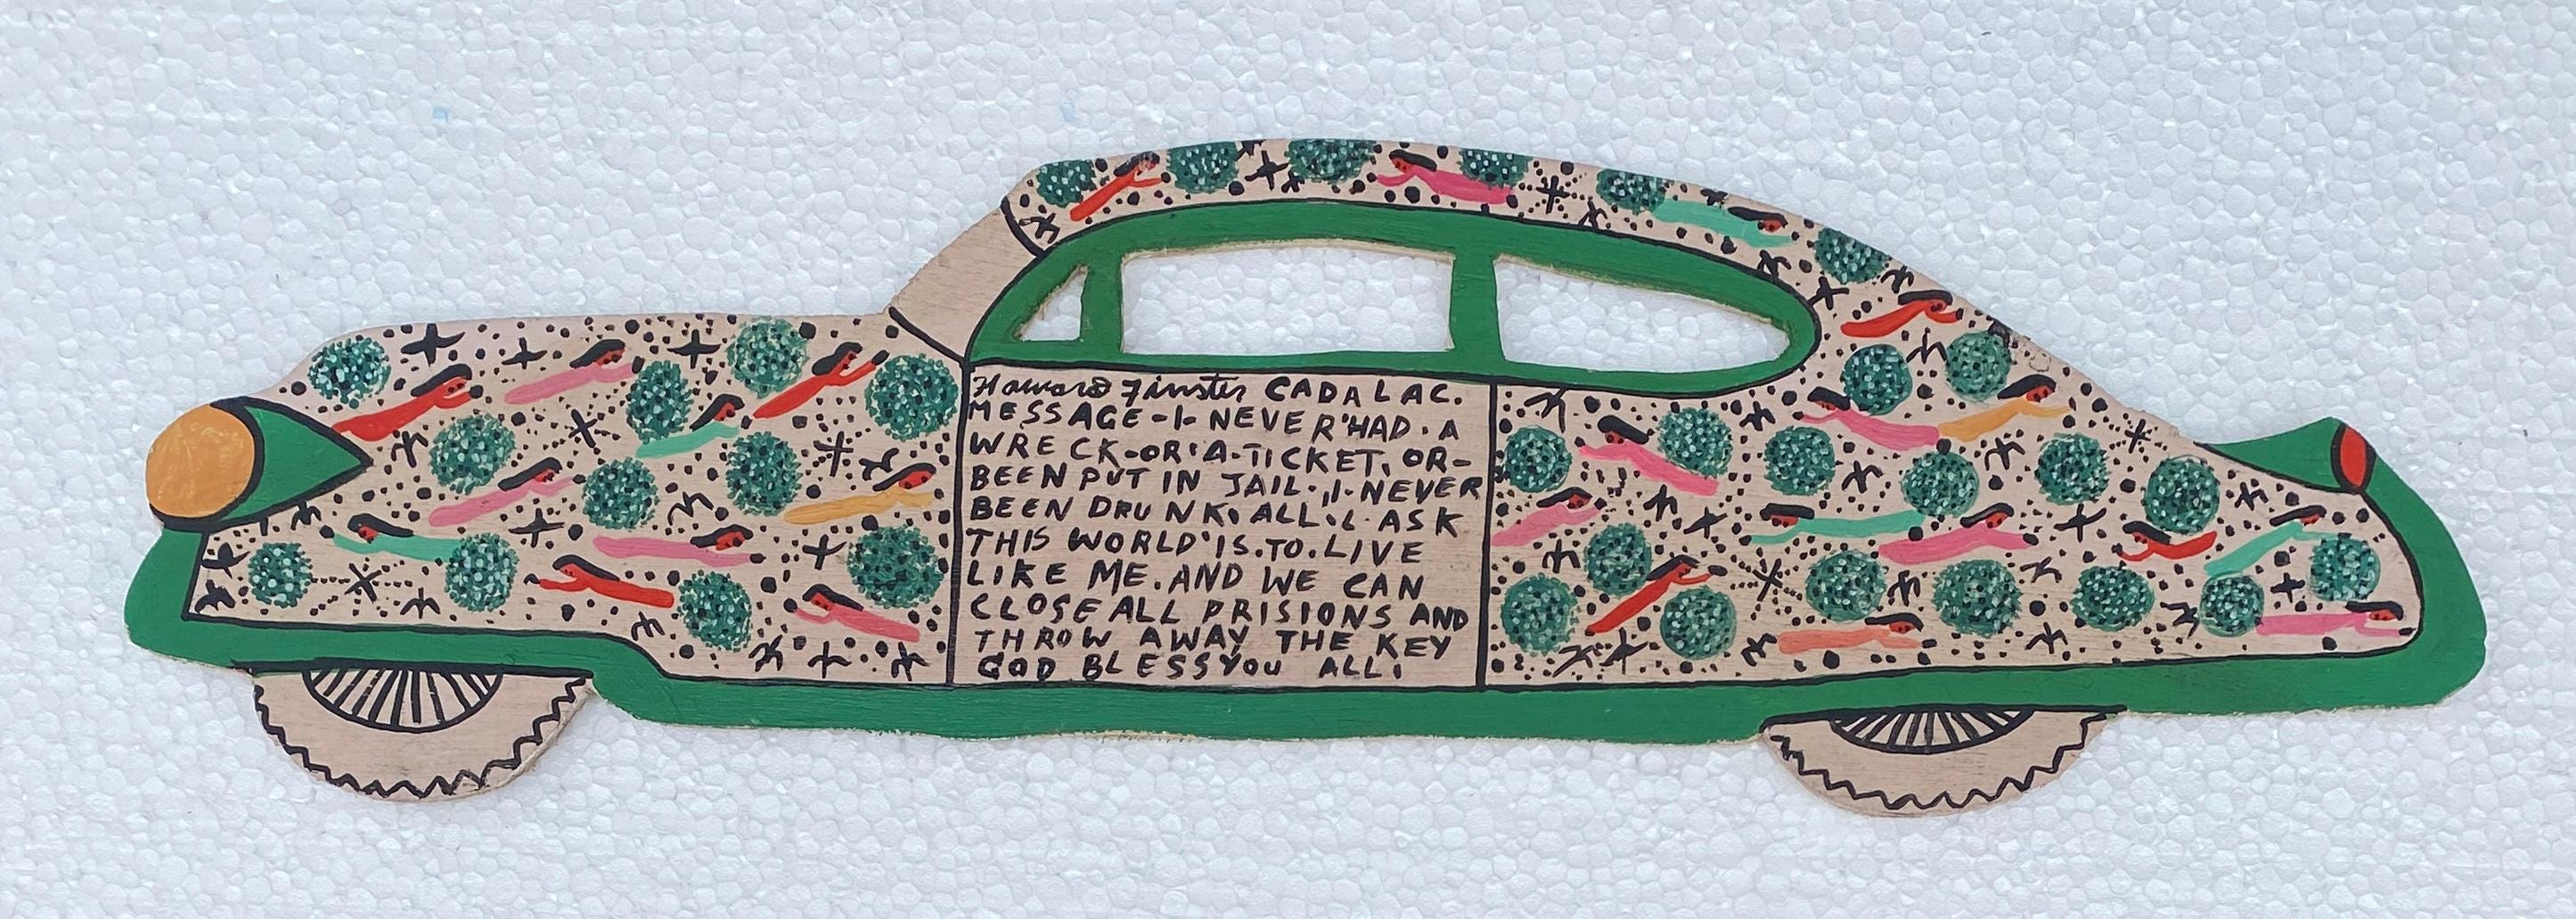 Howard Finster CADALAC.
MESSAGE-I-NEVER HAD. A
WRECK-OR A-TICKET. OR-
BEEN PUT IN JAIL. I. NEVER
BEEN DRUNK. ALL. I. ASK
THIS WORLD IS. TO. LIVE
LIKE ME. AND WE CAN
CLOSE ALL PRISIONS AND
THROW AWAY THE KEY
GOD BLESS YOU ALL.